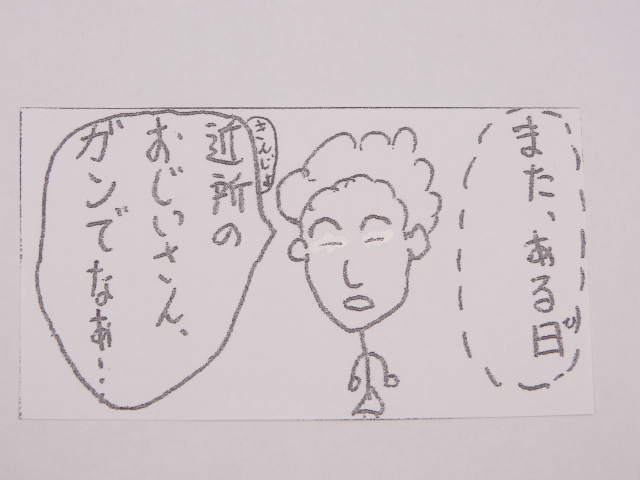 また、ある日
ひ
きんじょ
近所の
おじいさん、
ガンでなあ…